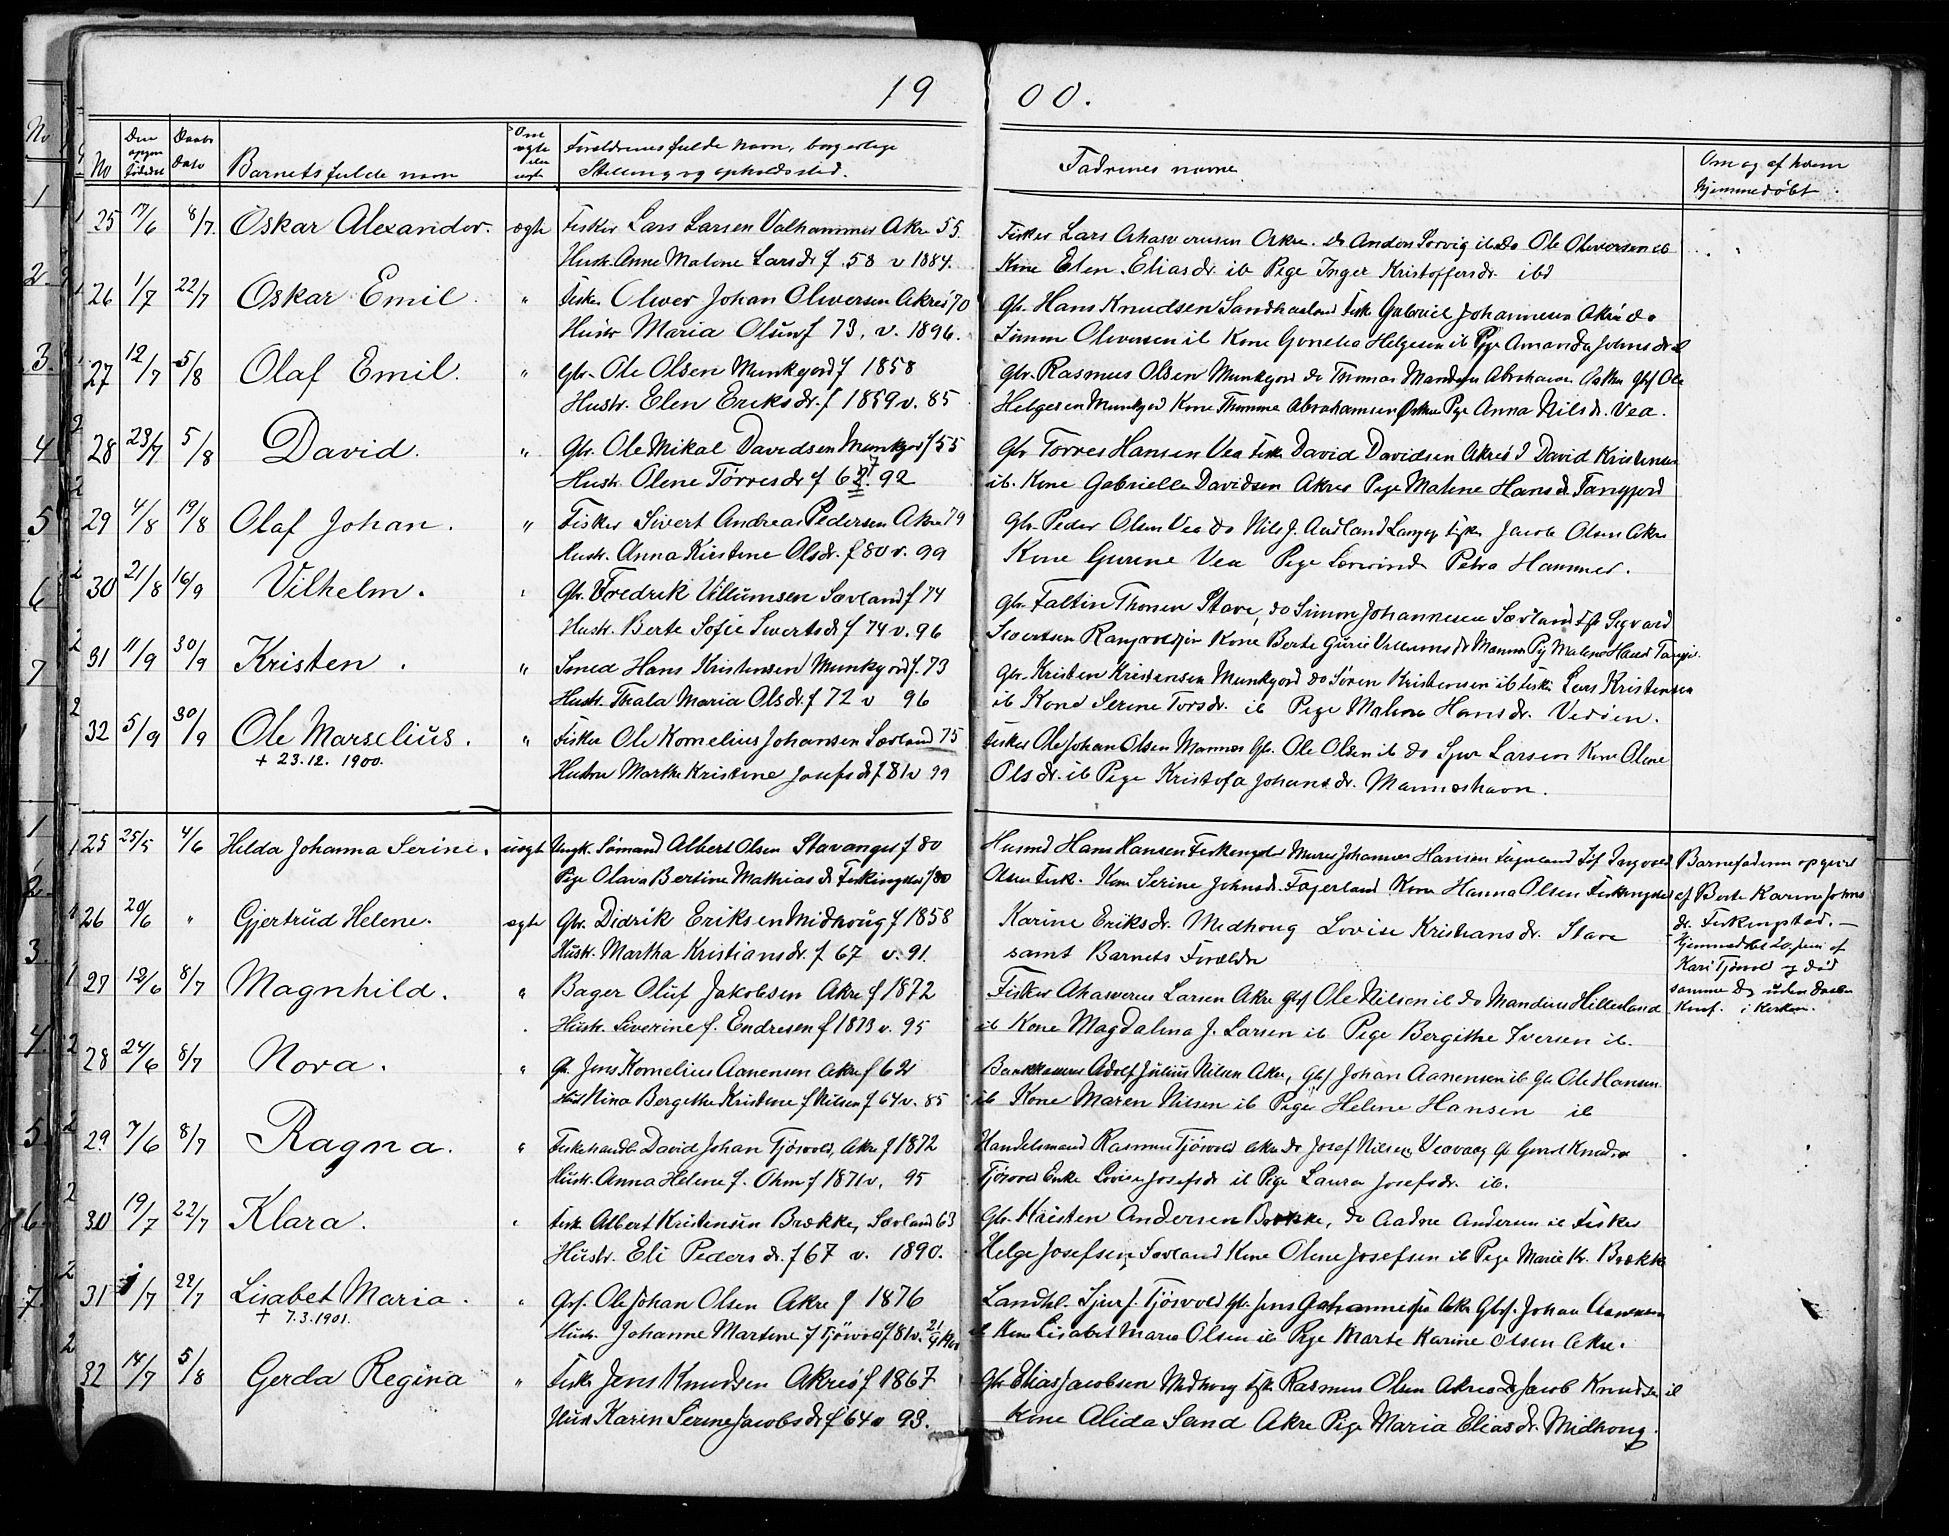 19 00.
No
Den opgivne
Daabs Dato
Barnets fulde navn
Om ægte eller uægte
Forældrenes fulde navn, borgerlige
Stilling og opholdssted.
Fadrenes navne.
Om og af hvem
hjemmedøbt.
25 17/6 8/7. Oskar Alexander. ægte Fisker Lars Larsen Valhammer Akre 55 Fisker Lars Ahasverusen Akre. do Andon Sørvig ib do Ole Oliversen ib
Hustr. Anne Malene Larsdr f. 58 v 1884. Kone Elen Eliasdr. ib Pige Inger Kristoffersdr. ibd
26 1/7 22/7 Oskar Emil. " Fisker Oliver Johan Oliversen Akre 70 Gbr. Hans Knudsen Sandhaaland Fisk Gabriel Johannesen Akre do
Hustr Maria Olsen f 73. v. 1896. Simon Oliversen ib Kone Gunelia Helgesen ib Pige Amanda Johnsdr. ib
27 12/7 5/8 Olaf Emil. " Gbr. Ole Olsen Munkejord f 1858 Gbr. Rasmus Olsen Munkejord do Thomas Mandrup Abrahamsen
Hustr. Elen Eriksdr. f 1859 v. 85 Helgesen Munkejord Kone Thomine Abrahamsen Pige Anna Nilsdr. Vea.
28 23/7 5/8 David. " Gbr. Ole Mikal Davidsen Munkejord f 55 Gbr Torres Hansen Vea Fisk David Davidsen Akre David Kristensen
Hustr. Olene Torresdr f 62. 92 ib. Kone Gabrielle Davidsen Akre Pige Malene Hansdr.
29 4/8 19/8 Olaf Johan. " Fisker Sivert Andreas Pedersen Akre 79 Gbr. Peder Olsen Vea do Nils J. Aadland Fisk Jacob Olsen Akre
Hustr. Anna Kirstine Olsdr. f 80 v. 99 Kone Gurine Vea Pige Petra Hammer.
30 21/8 16/9 Vilhelm. " Gbr. Fredrik Villumsen Sævland f 74 Gbr. Faltin Thorsen Stave, do Simon Johannesen Sævland Fisk Sigvard
Hustr. Berte Sofie Sivertsdr f 74 v. 96 Sivertsen Kone Berte Gurie Villumsdr Mannes Pige Malene Hansd
31 11/9 30/9 Kristen. " Smed Hans Kristensen Munkejord f. 73 Gbr. Kristen Kristensen Munkejord do Søren Kristensen ib Fisker Lars Kristensen
Hustr. Thala Maria Olsdr. f 72 v 96 ib Kone Serine Torsdr. ib Pige Malene Hansdr.
32 5/9 30/9 Ole Marselius. " Fisker Ole Kornelius Johansen Sævland 75 Fisker Ole Johan Olsen Mannes Gbr. Ole Olsen ib do Larsen Kone Olene
+ 23.12. 1900. Hustru Marthe Kristine Josefsdr f 81 v 99 Olsdr. ib Pige Kristofa Johansdr. Manneshavn.
25 25/5 4/6 Hilda Johanna Serine. uægte Ungk. Sømand Albert Olsen Stavanger f 80 Husmd Hans Hansen Ferkingstad Murer Johannes Hansen Ingvald Barnefaderen opgivet
Pige Olava Bertine Mathiasdr Ferkingstad f 80 Olsen Ferk. Kone Serine Johnsdr. Fagerland Kone Hanna Olsen Ferkingstad af Berte Karine Johns
26 20/6 " Gjertrud Helene. ægte Gbr. Didrik Eriksen Midhoug f 1858 Karine Eriksdr. Medhoug Lovise Kristiansdr. Stave dr. Ferkingstad. —
Hustr. Martha Kristiansdr. f 67 v. 91. samt Barnets Forældre Hjemmedøbt 20 juni af
Kari Tjøsvold og død
27 12/6 8/7 Magnhild. " Bager Oluf Jakobsen Akre f 1872 Fisker Ahasverus Larsen Akre Gbf Ole Nilsen ib do Mandius Hillesland samme Dag uden Daabs
Hustr. Siverine f. Endresen f 1873 v. 95 ib Kone Magdalina J. Larsen ib Pige Bergithe Iversen ib. Konf. i Kirken.
28 24/6 8/7 Nora. " Gbr. Jens Kornelius Aanensen Akre f 62 Adolf Julius Nilsen Akre, Gbf Johan Aanensen ib Gbr Ole Hansen
Hust Nina Bergithe Kristine f Nilsen f 64 v. 85 ib Kone Maren Nilsen ib Pige Helene Hansen ib
29 7/6 8/7 Ragna. " Fiskehandl. David Johan Tjøsvold, Akre f 1872 Handelsmand Rasmus Tjøsvold Akre do Josef Nilsen, Veavaag Gbr Knudsen
Hustr. Anna Helene f. Ohm f 1871 v. 95 Tjøsvold Enke Lovise Josefsdr ib Pige Laura Josefsdr. ib.
30 19/7 22/7 Klara. " Fisk. Albert Kristensen Brække, Sævland 63 Gbr. Kristen Andersen Brække, do Aadne Andersen ib Fisker
Hustr. Eli Pedersdr. f 67 v. 1890. Helge Josefsen Sævland Kone Olene Josefsen ib Pige Marie Kr. Brække
31 1/7 22/7 Lisabet Maria. " Gbf. Ole Johan Olsen Akre f 1876 Landhl. Sjur J. Tjøsvold Gbr. Jens Akre Gbf. Johan Aanensen
+ 7.3.1901. Hustr. Johanne Martine f Tjøsvold f 81 v. ib Kone Lisabet Marie Olsen ib Pige Marte Karine Olsen Akre.
32 14/7 5/8 Gerda Regina " Fisk Jens Knudsen Akre f 1867 Gbr Elias Jacobsen Midhoug Fisk Rasmus Olsen Akre do Jacob Knudsen ib
Hust Karen Serine Jacobsdr f 64 v 93. Kone Alida Sand Akre Pige Maria Eliasdr. Midhoug.